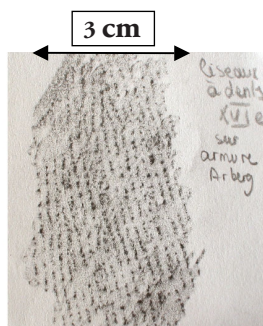 3 cm
Ciseaux
à dents
XVI e
sur
armure
Arberg